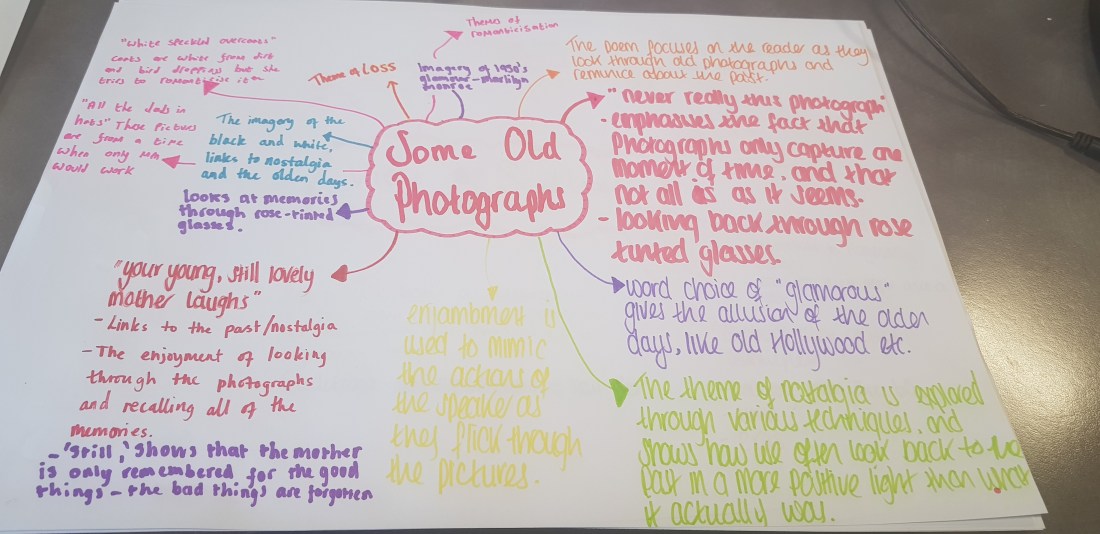 Some Old
Photographs
Theme of
romanticisation
"white speckled overcoats"
coats are white from dirt
and bird droppings but she
tries to romanticise it
"All the dads in
hats" Those Pictures
are from a time
when only men
would work
Theme of Loss
Imagery of 1950's
glamour - marilyn
monroe
The imagery of the
black and white,
links to nostalgia
and the olden days.
looks at memories
through rose-tinted
glasses.
The poem focuses on the reader as they
look through old photographs and
reminice about the past.
"never really this photograph"
- emphasises the fact that
Photographs only capture one
moment of time, and that
not all is as it seems.
- looking back through rose
tinted glasses.
word choice of "glamorous"
gives the allusion of the older
days, like old Hollywood etc.
The theme of nostalgia is explored
through various techniques, and
shows how we often look back to the
past in a more positive light than what
it actually was.
enjambment is
used to mimic
the actions of
the speaker as
they flick through
the pictures.
"your young, still lovely
mother laughs"
- Links to the past/nostalgia
- The enjoyment of looking
through the photographs
and recalling all of the
memories.
- 'still,' shows that the mother
is only remembered for the good
things - the bad things are forgotten